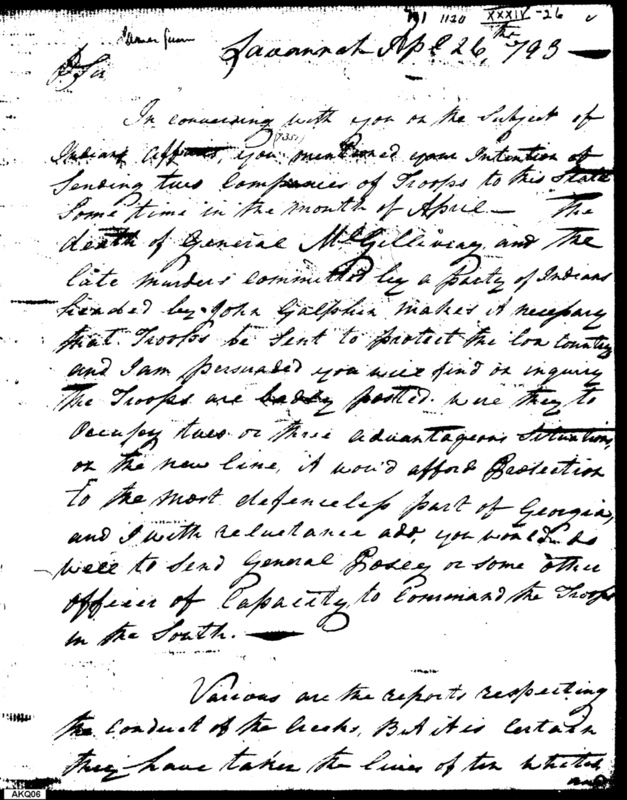 791 1120 XXXIV -26
James Gunn
Savannah Apl 26th, 793
D Sir
In conversing with you on the Subject of
Indian Affairs, you mentioned your Intention of
Sending two Companies of Troops to this State
Some time in the month of April — The
death of General McGilliveray and the
late murders committed by a party of Indians
headed by John Galphin makes it necessary
that Troops be Sent to protect the low Country
and I am persuaded you will find on inquiry
the Troops are badly posted. were they to
Occupy two or three advantageous Situations,
on the new line, it wou'd afford Protection
to the most defenceless part of Georgia,
and I with reluctance add, you would do
well to Send General Posey or some other
officer of Capacity, to Command the Troops
in the South. —
Various are the reports respecting
the Conduct of the Creeks, But it is Certain
they have taken the lives of ten whites,
and
AKQ06